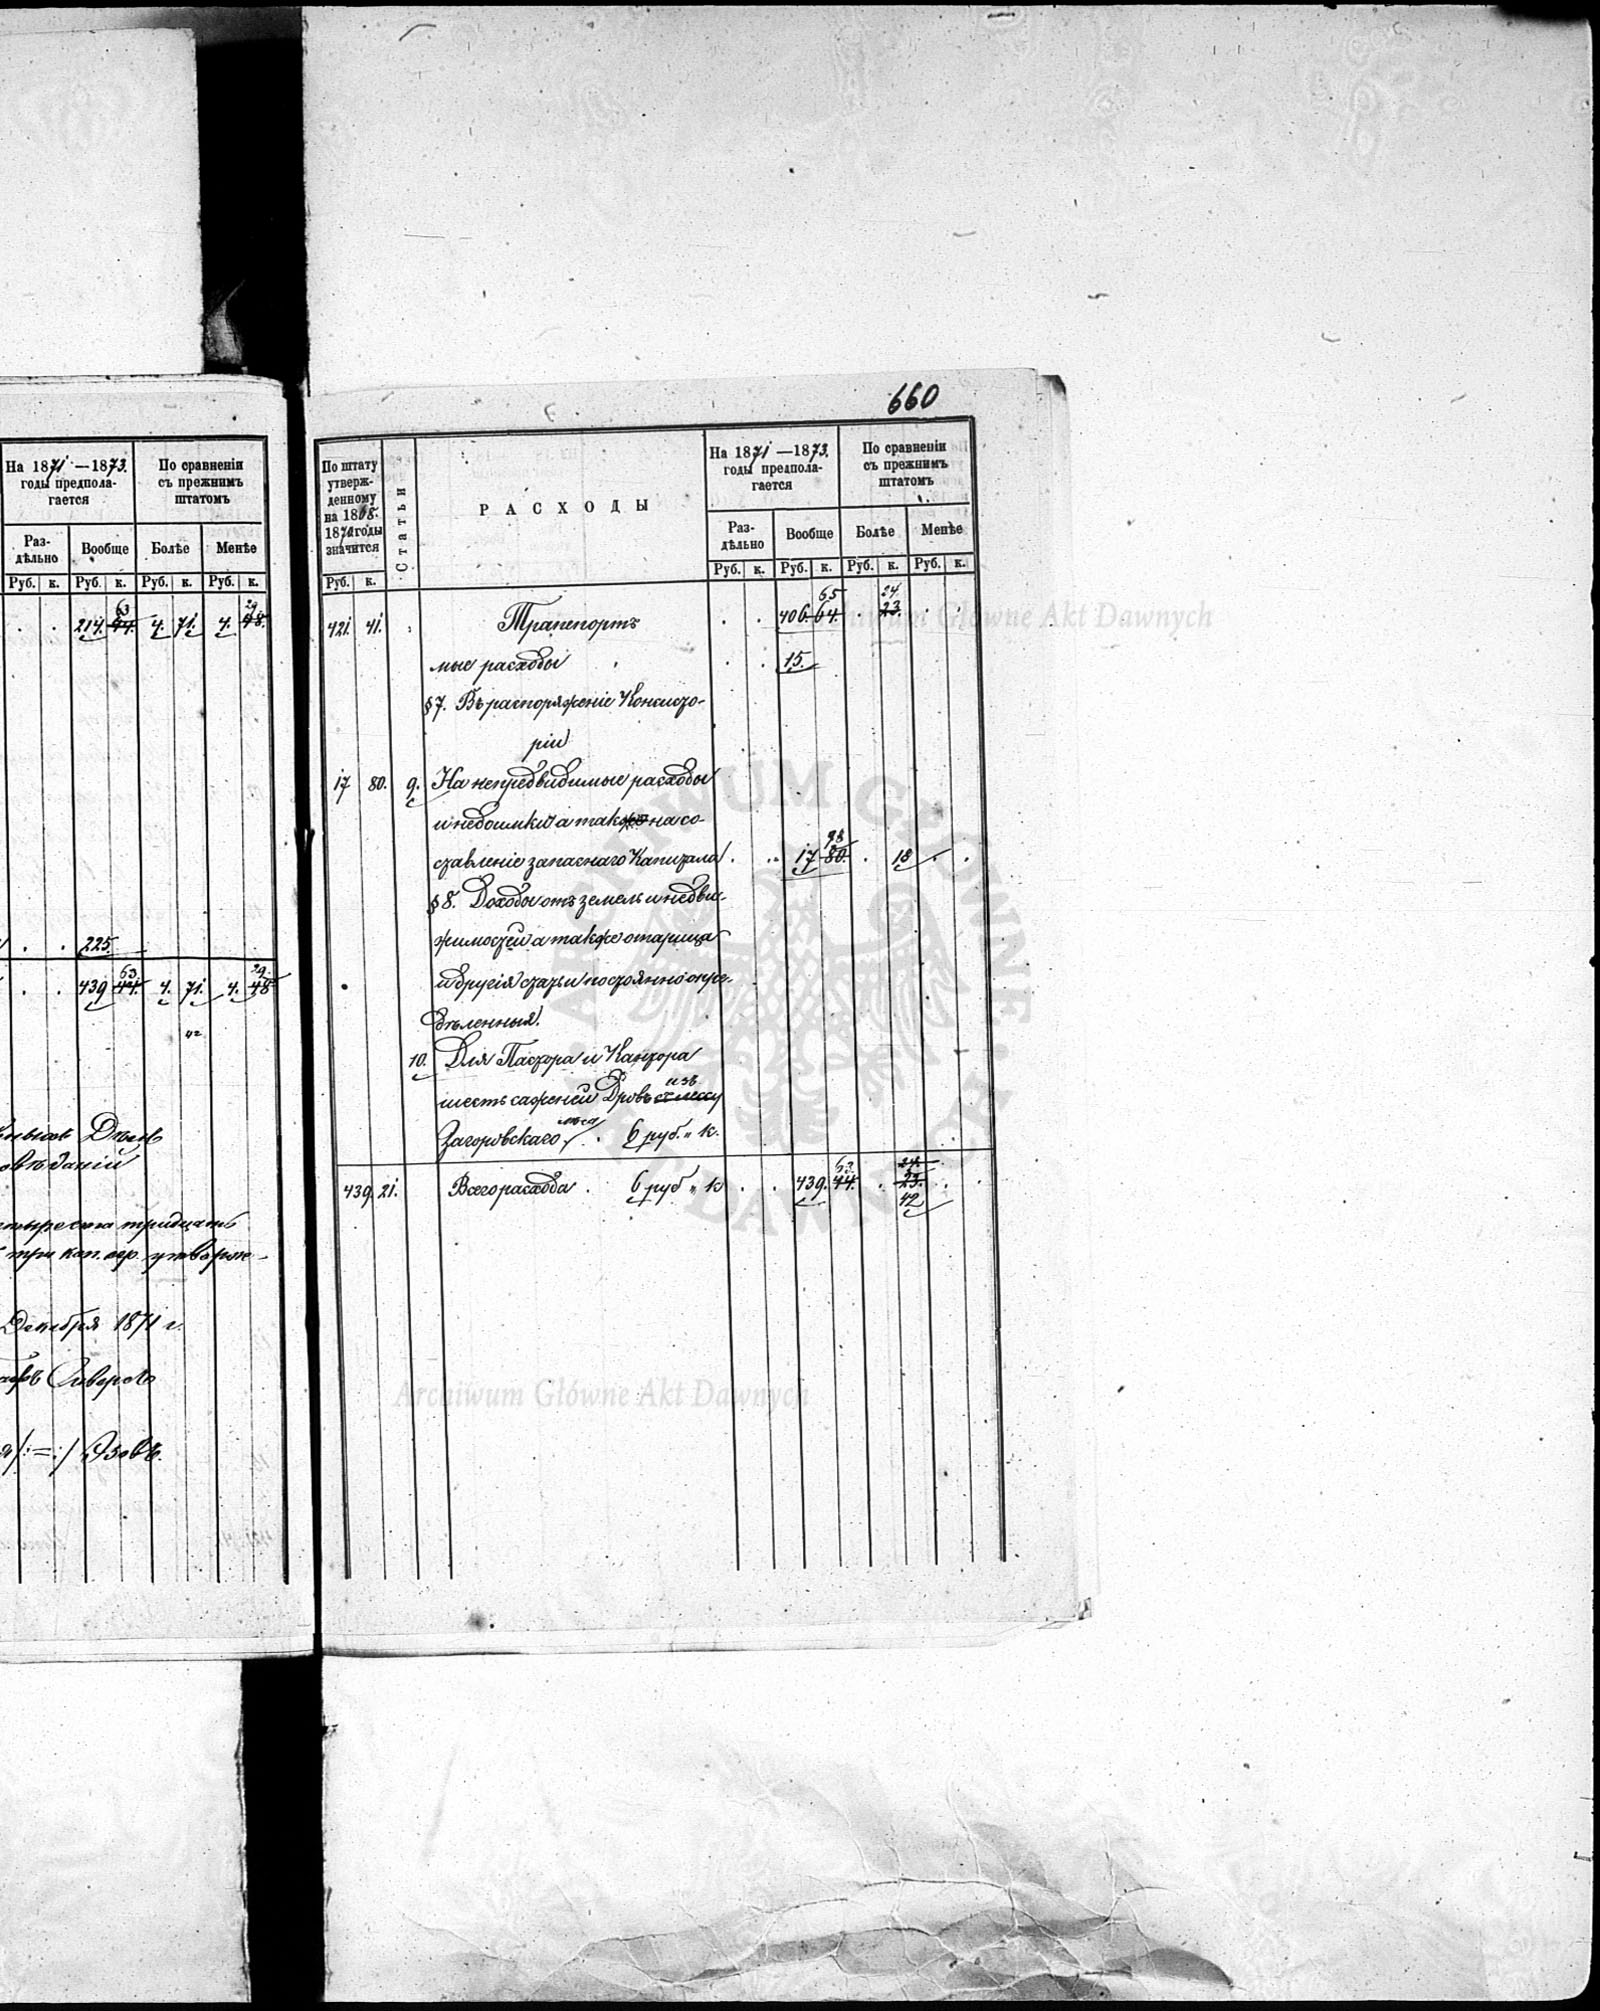 На 1871 — 1873.
годы предпола-
гается
По сравненіи
съ прежнимъ
штатомъ
Раз-
дѣльно
Вообще
Болѣе
Менѣе
Руб. к. Руб. к. Руб. к. Руб. к.
63 29
. . 214. 44. 4. 71. 4. 48.
. . 225.
63. 29.
. . 439 44. 4. 71. 4. 48
42
Дѣлъ
тридцать
три коп. сер. утверж-
Декабря 1871 г.
/:=:/
660
По штату
утверж-
денному
на 1868-
1870 годы
значится
Статьи
РАСХОДЫ
На 1871 — 1873.
годы предпола-
гается
По сравненіи
съ прежнимъ
штатомъ
Раз-
дѣльно
Вообще
Болѣе
Менѣе
Руб. к.
Руб. к. Руб. к. Руб. к. Руб. к.
65 24.
421. 41. Транспортъ . . 406. 64. . 23. . .
мые расходы . . 15.
§ 7. Въ распоряженіе Консисто-
ріи
17 80. 9. На непредвидимые расходы
и недоимки а также на со-
98
ставленіе запаснаго Капитала . . 17 80. . 18 . .
§ 8. Доходы отъ земель и недви-
жимостей а также
и другія статьи постоянно опре-
дѣленныя.
10. Для Пастора и Кантора
изъ
шесть саженей Дровъ
лѣса
Загоровскаго . 6 руб. " к.
63. 24.
439. 21. Всего расхода . 6 руб " к . . 439. 44. . 23. . .
42
Archiwum Główne Akt Dawnych
ARCHIWUM GŁÓWNE AKT DAWNYCH
Archiwum Główne Akt Dawnych